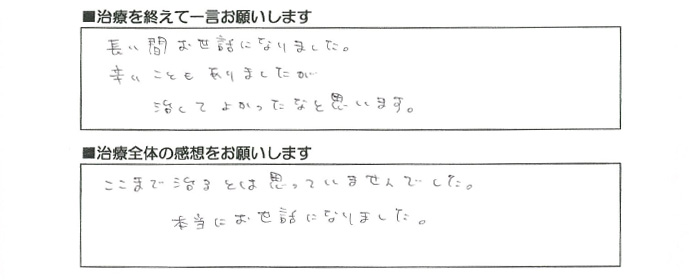 ■治療を終えて一言お願いします
長い間お世話になりました。
辛いこともありましたが
治してよかったなと思います。
■治療全体の感想をお願いします
ここまで治るとは思っていませんでした。
本当にお世話になりました。